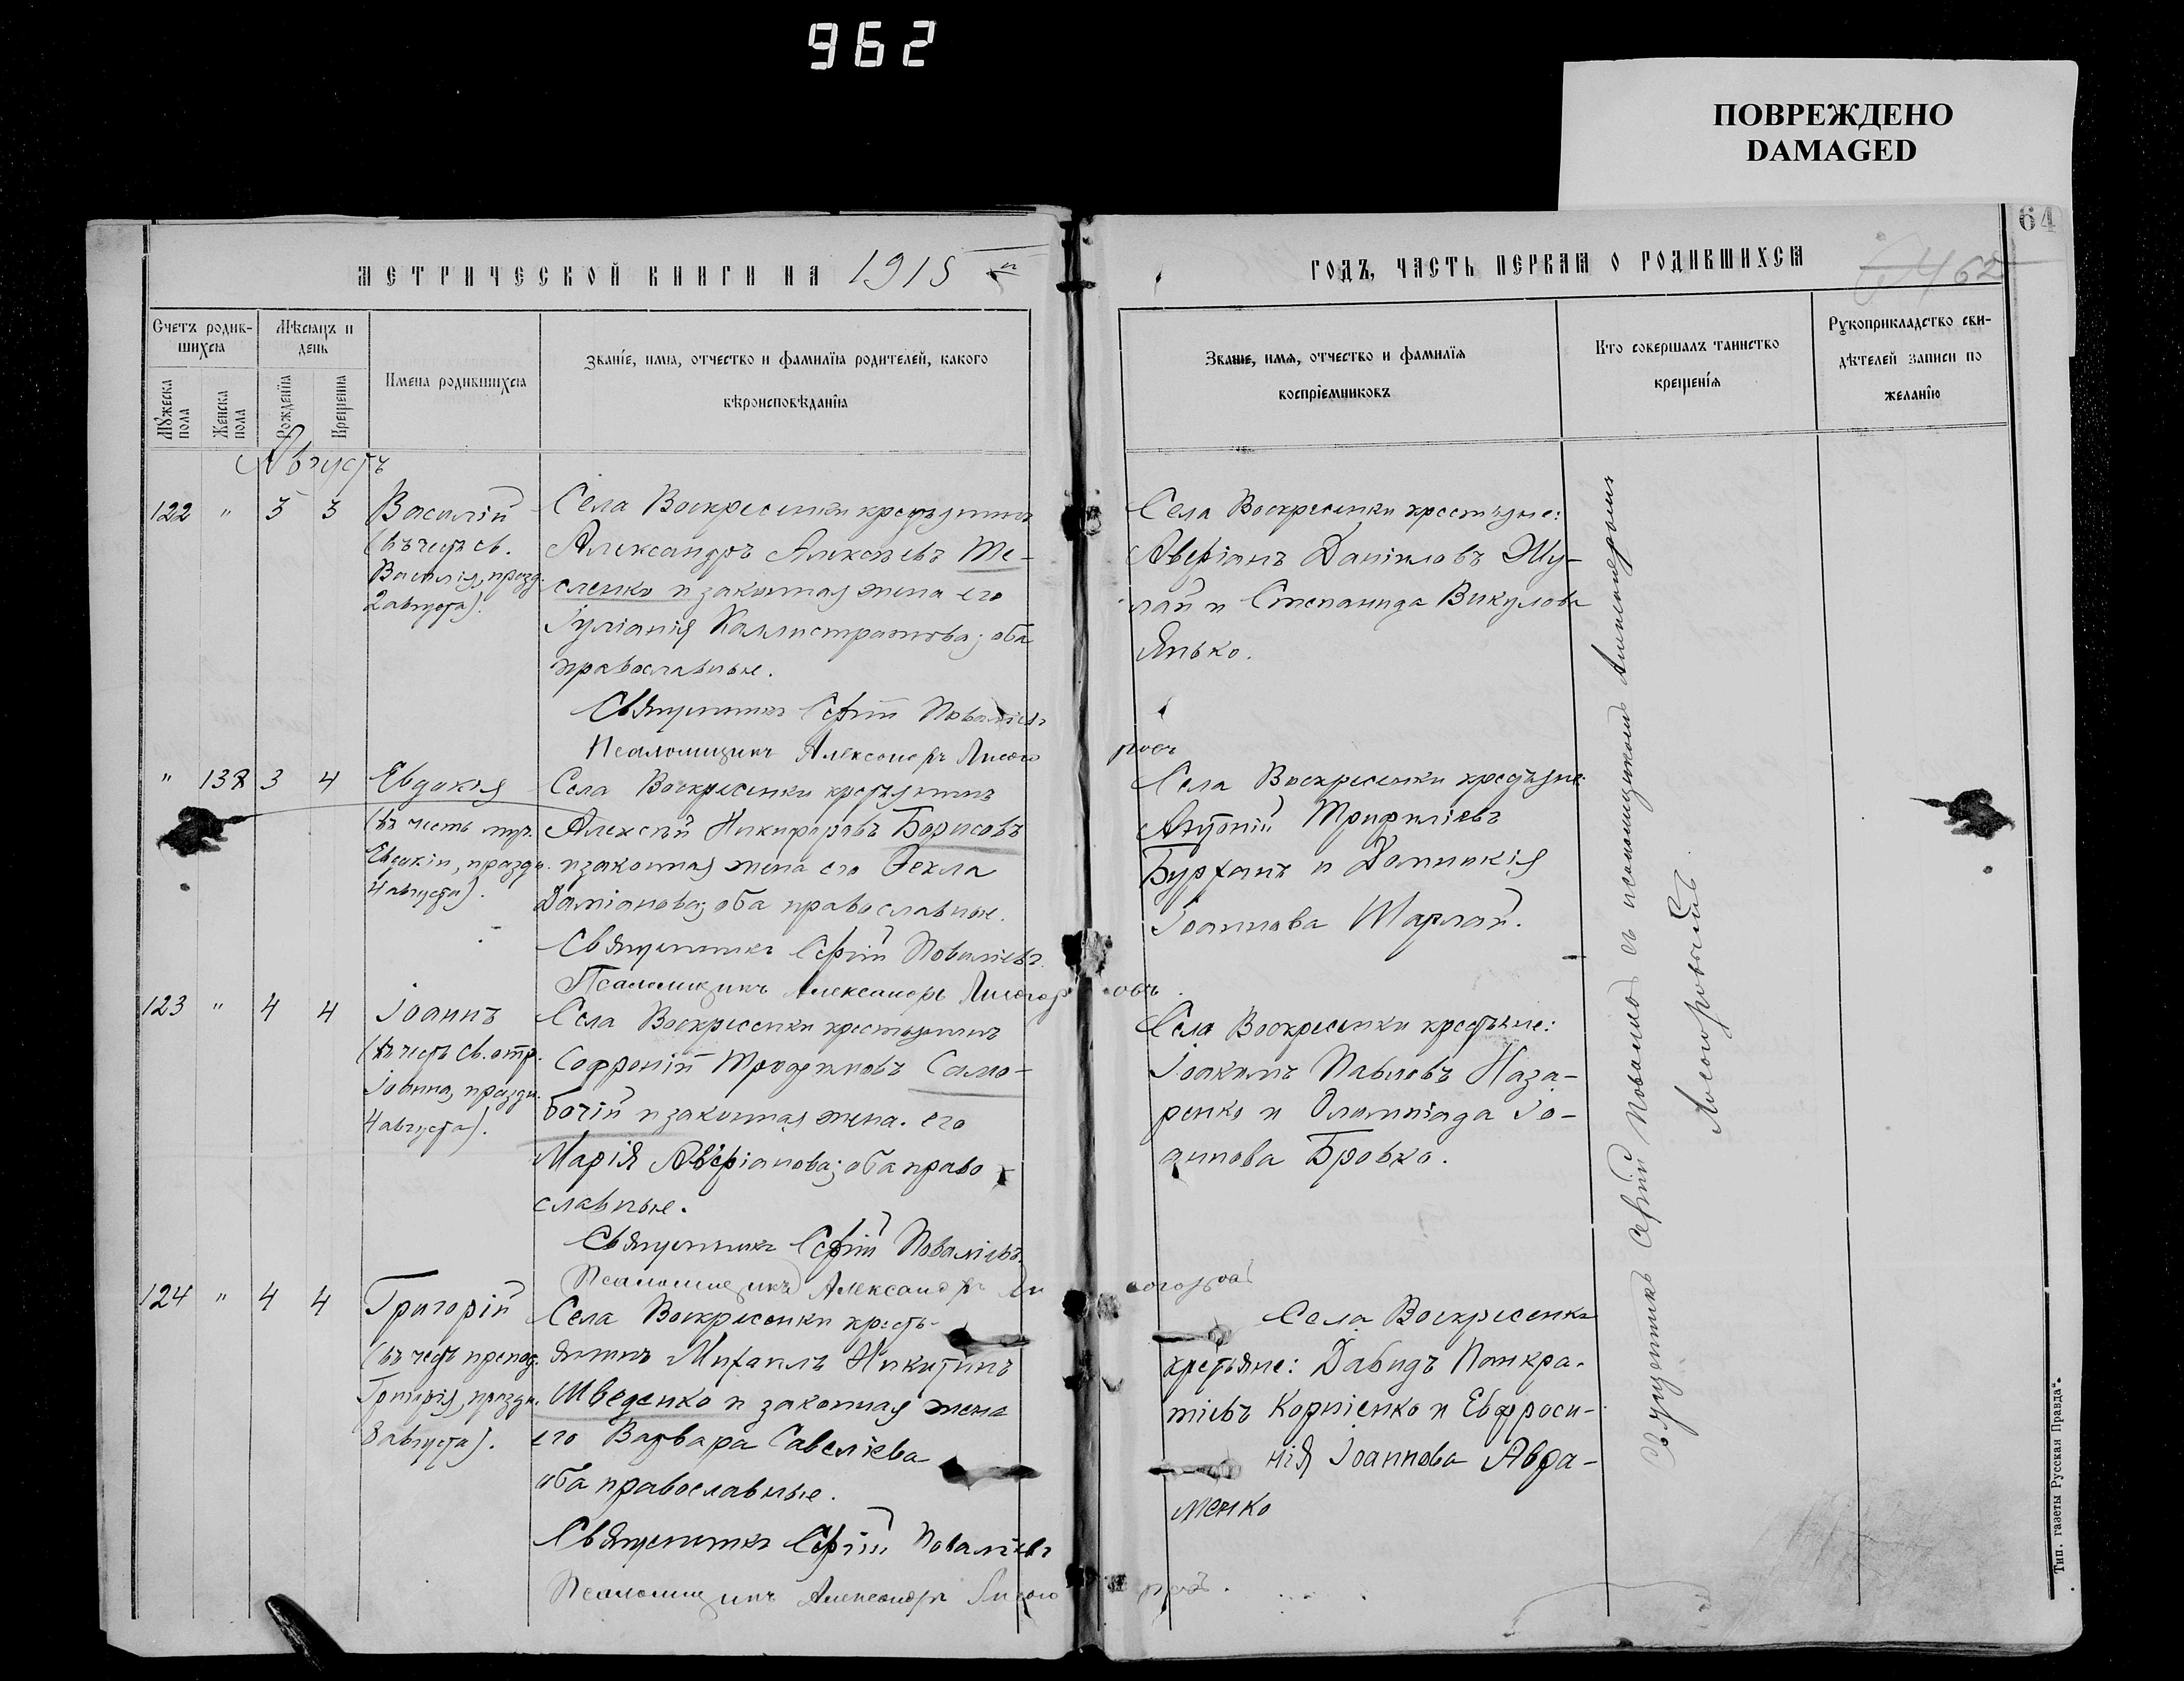 962
ПОВРЕЖДЕНО
DAMAGED
64
МЕТРИЧЕСКОЙ КНИГИ НА 1915
ГОДЪ, ЧАСТЬ ПЕРВАЯ О РОДИВШИХСЯ
62
Счетъ родив-
шихся
Мѣсяцъ и
день
Мужеска
пола
Женска
пола
Рожденія
Крещенія
Имена родившихся
Званіе, имя, отчество и фамилія родителей, какого
вѣроисповѣданія
Званіе, имя, отчество и фамилія
воспріемниковъ
Кто совершалъ таинство
крещенія
Рукоприкладство сви-
дѣтелей записи по
желанію
Августъ
122 " 3 3 Василій
(въ честь св.
Василія, празд.
2 августа).
Села Воскресенки крестьянинъ
Александръ Алексѣевъ Те-
сленко и законная жена его
Іуліанія Каллистратова; оба
православные.
Священникъ Сергій Поваліевъ
Псаломщикъ Александръ Лисого
ровъ
Села Воскресенки крестьяне:
Аверіанъ Даніиловъ Шу-
лай и Степанида Викулова
Янько.
" 138 3 4 Евдокія
(въ честь муч.
Евдокіи, праздн.
4 августа).
Села Воскресенки крестьянинъ
Алексѣй Никифоровъ Борисовъ
и законная жена его Фекла
Даміанова; оба православные.
Священникъ Сергій Поваліевъ
Псаломщикъ Александръ Лисогор
овъ.
Села Воскресенки крестьяне:
Антоній Трифиліевъ
Бурханъ и Домникія
Іоаннова Шарлай.
123 " 4 4 Іоаннъ
(въ честь св. отр.
Іоанна, праздн.
4 августа).
Села Воскресенки крестьянинъ
Софроній Трофимовъ Само-
бочій и законная жена его
Марія Аверіанова; оба право
славные.
Священникъ Сергій Поваліевъ
Псаломщикъ Александръ Ли
согоровъ
Села Воскресенки крестьяне:
Іоакимъ Павловъ Наза-
ренко и Олимпіада Іо-
аннова Бровко.
124 " 4 4 Григорій
(въ честь препод.
Григорія, праздн.
8 августа).
Села Воскресенки кресть-
янинъ Михаилъ Никитинъ
Шведенко и законная жена
его Варвара Савеліева
оба православные.
Священникъ Сергій Поваліевъ
Псаломщикъ Александръ Лисого
ровъ.
Села Воскресенки
крестьяне: Давидъ Панкра-
тіевъ Корніенко и Евфроси-
нія Іоаннова Авра-
менко
Священникъ Сергій Поваліевъ съ псаломщикомъ Александромъ
Лисогоровымъ
Тип. газеты „Русская Правда“.